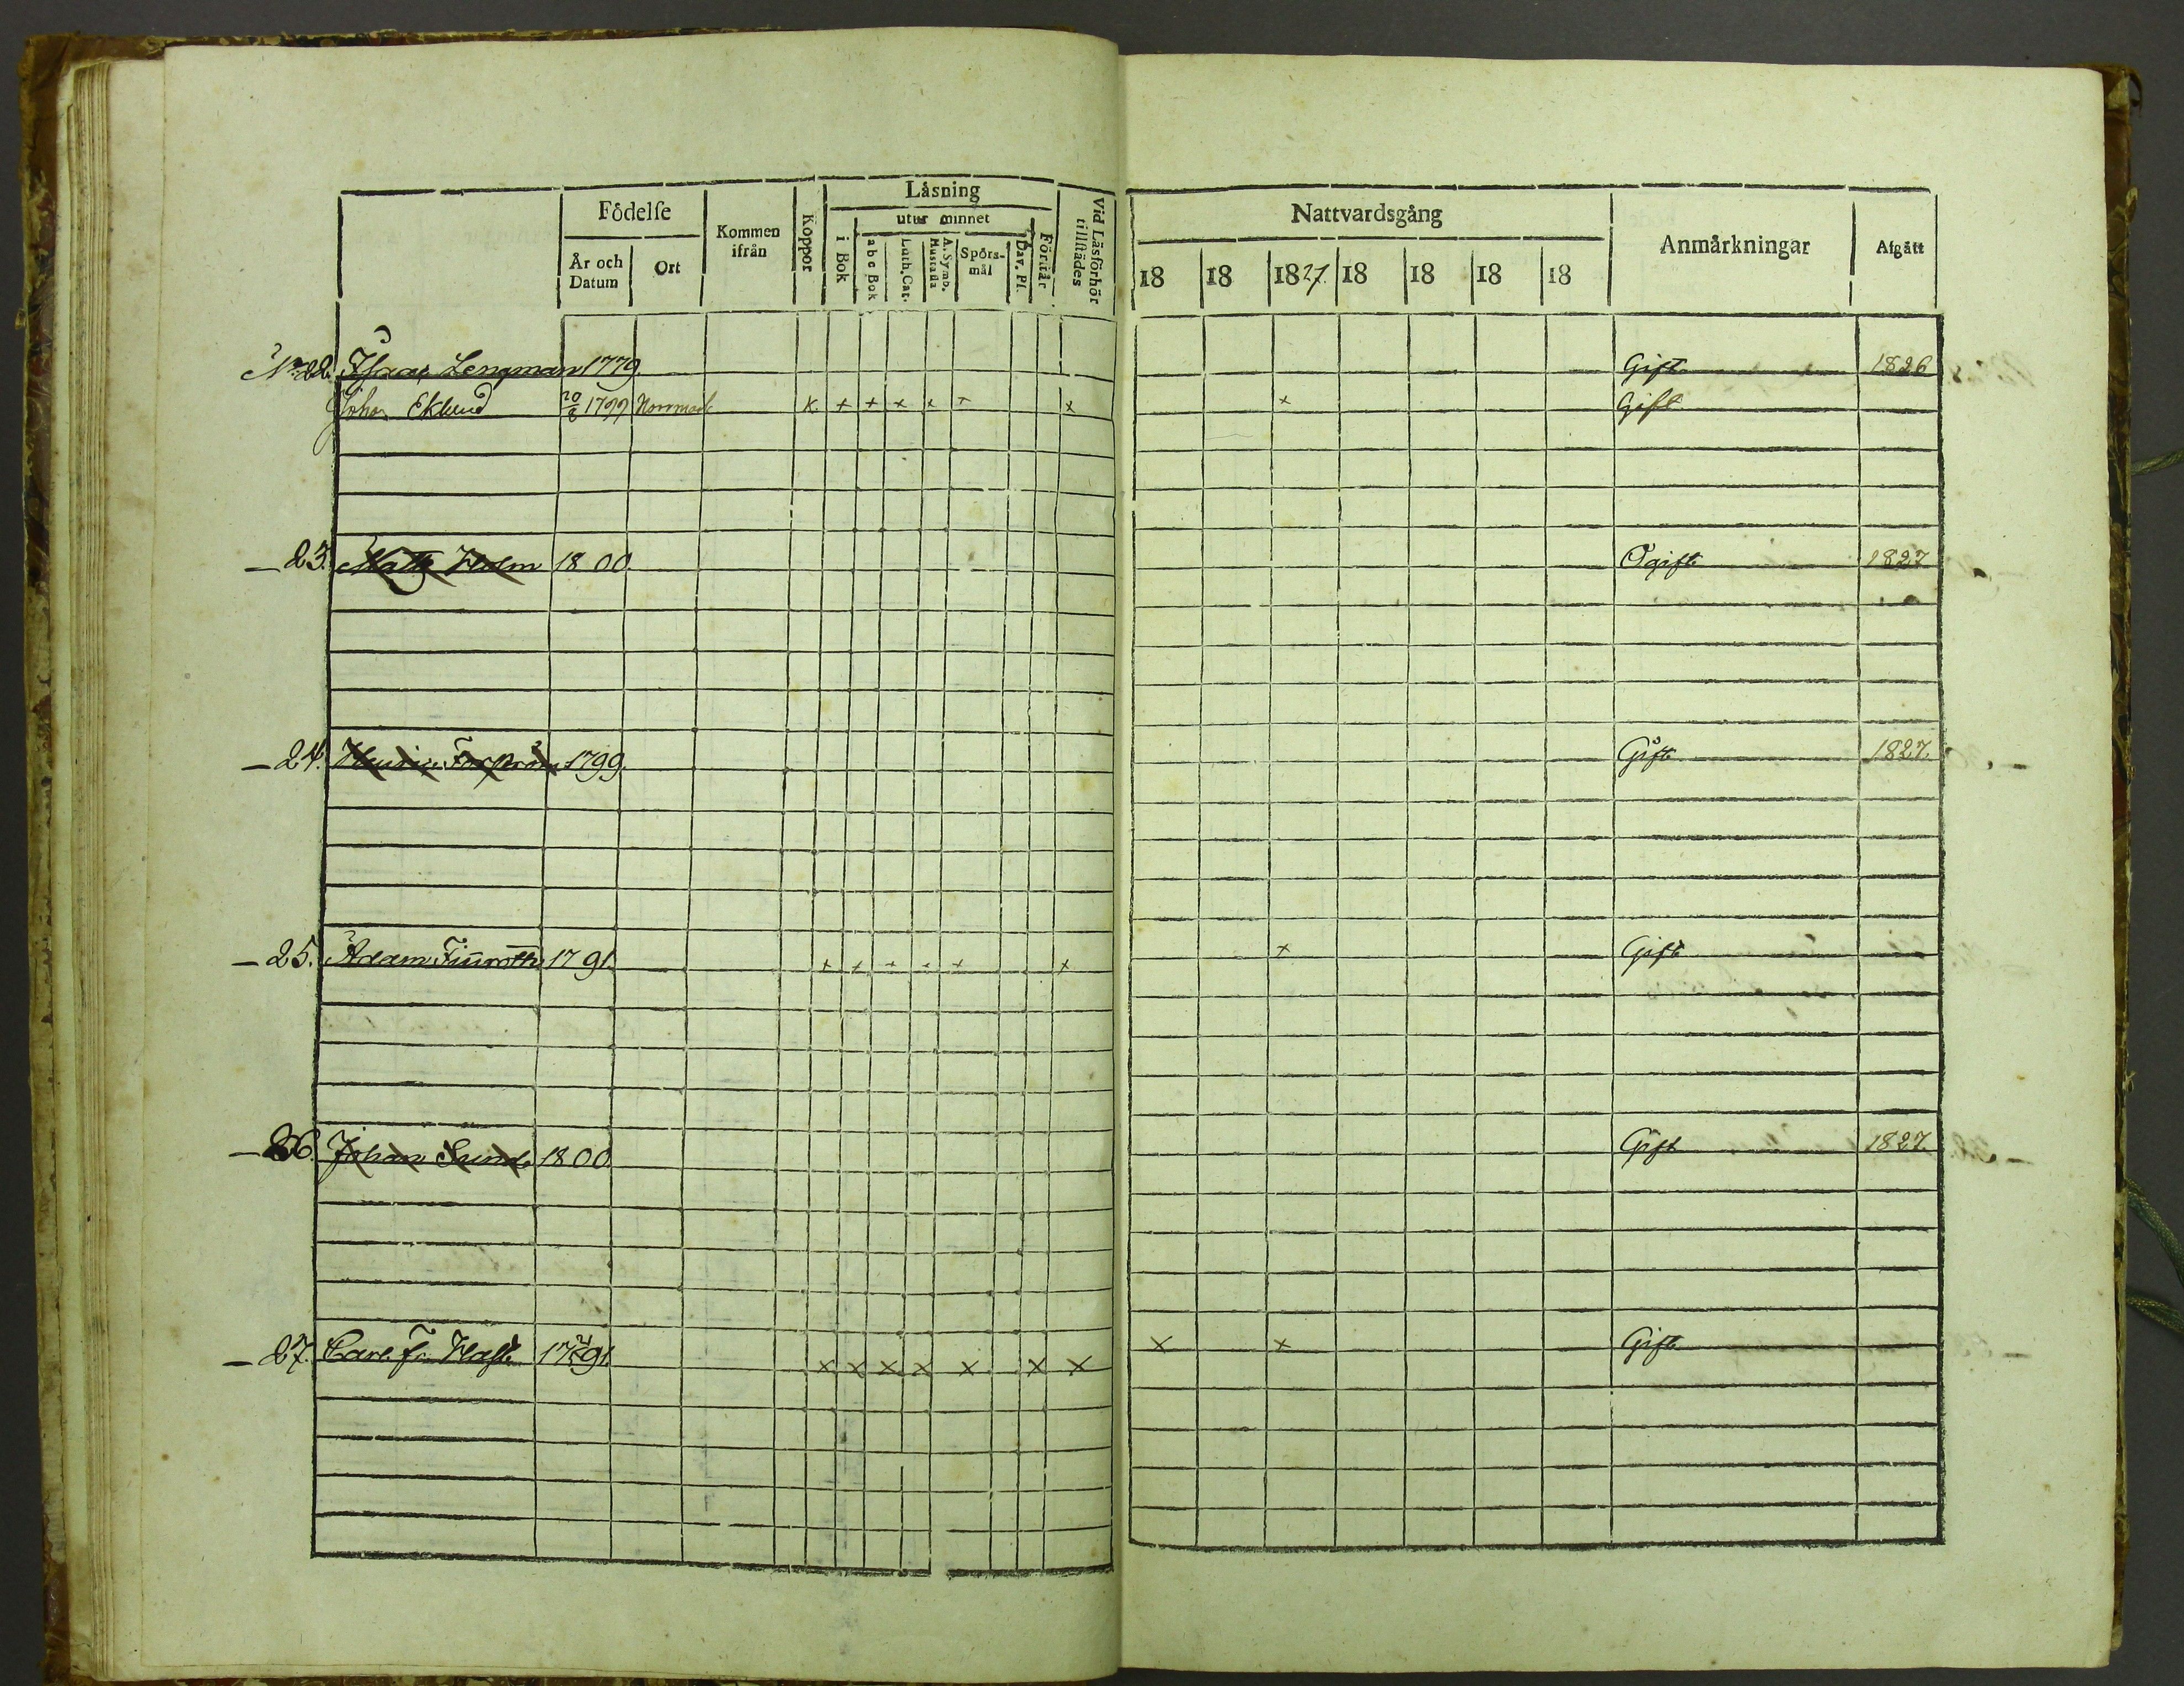 Födelse
Kommen ifrån
Koppor
Läsning
utur minnet
Vid Läsförhör tillstädes
År och Datum
Ort
i Bok
abc Bok
Luth. Cat.
A. Symb. Hustafla
Spörs-mål
Dav. Ps.
Förstår
Nattvardsgång
Anmärkningar
Afgått
18 18 1827. 18 18 18 18
No 22. Isaac Lengman 1779 Gift 1826
Johan Eklund 20/6 1799 Norrmark K + + + + + x x Gift
– 23. Matts Holm 1800. Ogift 1827
– 24. 1799. Gift 1827.
– 25. Adam Finnroth 1791. + + + + + x x Gift
– 26. Johan Sund 1800. Gift 1827.
– 27. Carl Fr. 1791. x x x x x x x x x Gift